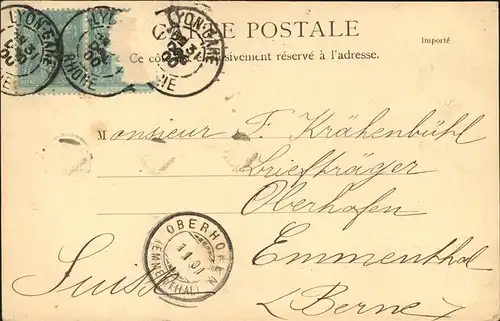 CARTE POSTALE
Ce côté exclusivement réservé à l'adresse.
Importé
LYON-GARE
RHONE
LYON-GARE
31
Monsieur F. Krähenbühl
briefträger
Oberhofen
Emmenthal
Suisse
(Berne)
OBERHOFEN
1.1.01
(EMMENTHAL)